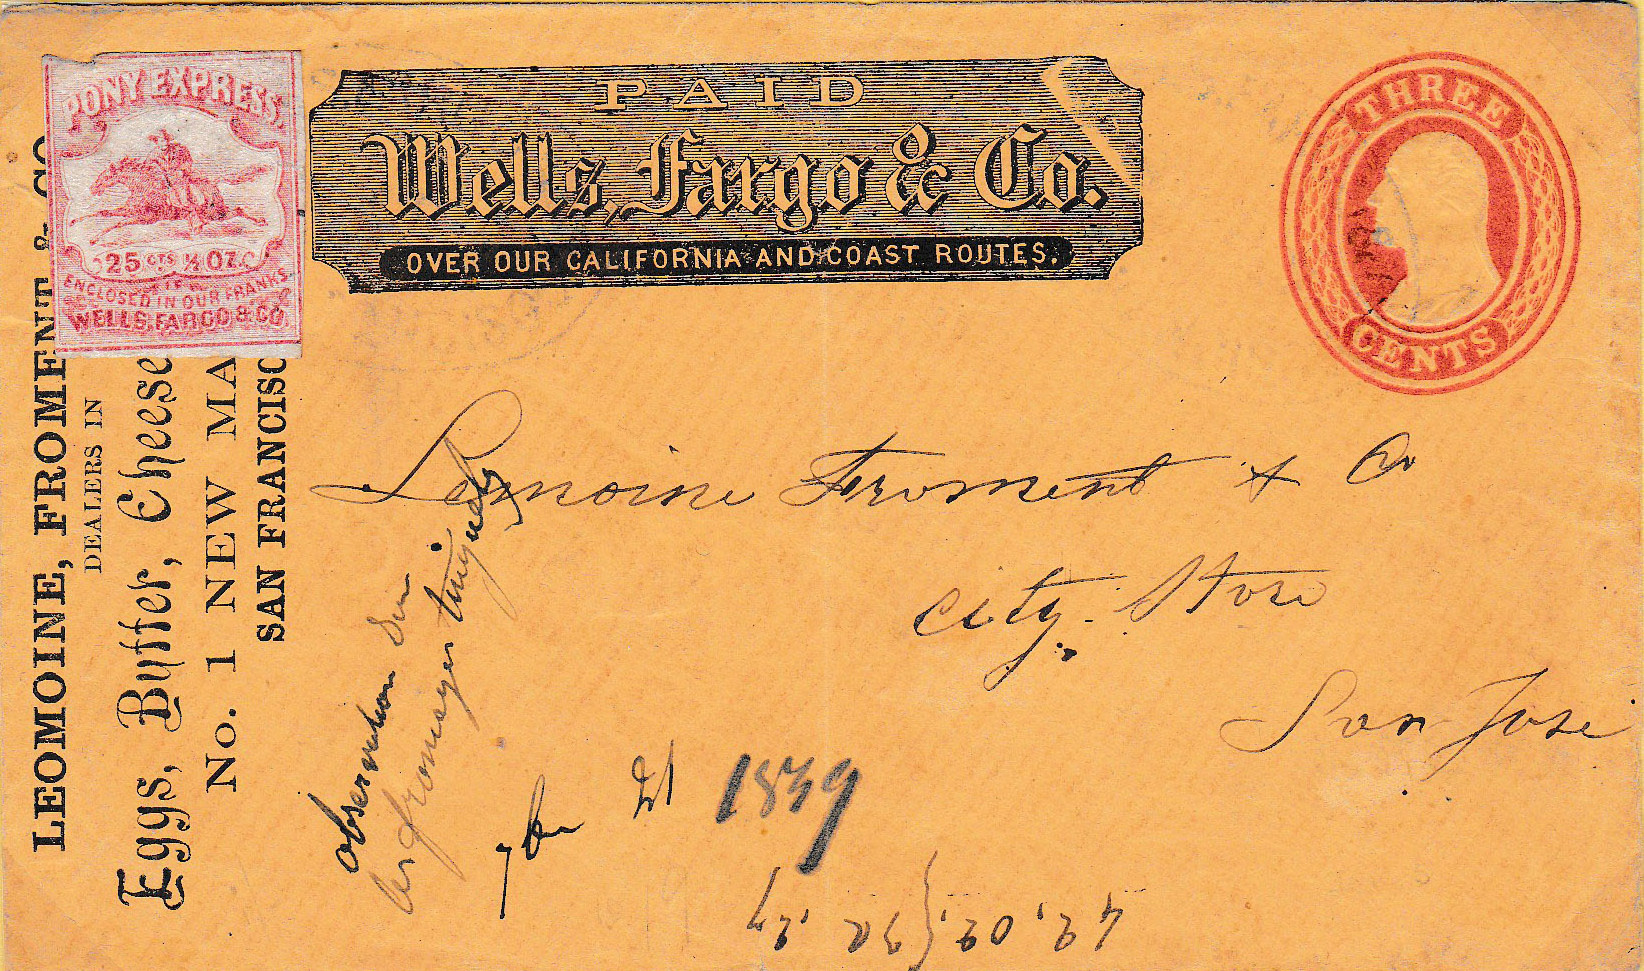 PONY EXPRESS.
25 CTS ½ OZ.
IF
ENCLOSED IN OUR FRANKS
WELLS, FARGO & CO.
PAID
Wells, Fargo & Co.
OVER OUR CALIFORNIA AND COAST ROUTES.
THREE
CENTS
LEOMOINE, FROMENT & CO
DEALERS IN
Eggs, Butter, Cheese
No. 1 NEW MA
SAN FRANCISC
Lemoine Froment & Co
City Store
San Jose
observation
7ber 21 1859